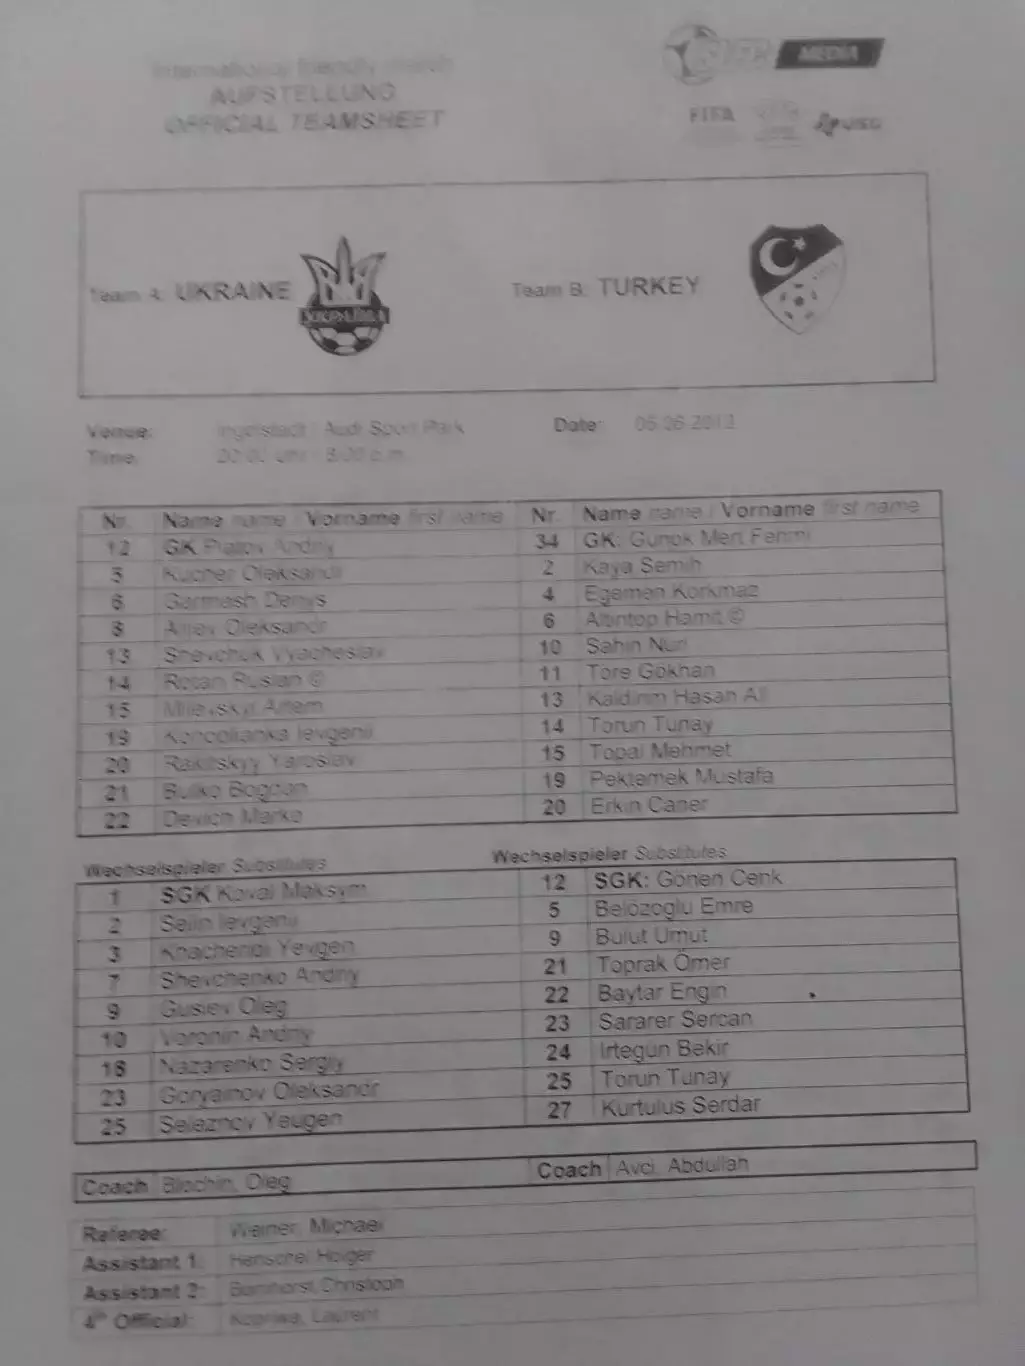 International friendly match
AUFSTELLUNG
OFFICIAL TEAMSHEET
MEDIA
FIFA
Team A: UKRAINE
Team B: TURKEY
Venue: Ingolstadt Audi Sport Park Date: 05.06.2012
Time: 20:00 Uhr / 8:00 p.m.
Nr. Name name / Vorname first name Nr. Name name / Vorname first name
12 GK Piatov Andriy 34 GK: Günok Mert Fehmi
5 Kucher Oleksandr 2 Kaya Semih
6 Garmash Denys 4 Egemen Korkmaz
8 Aliiev Oleksandr 6 Altintop Hamit ©
13 Shevchuk Vyacheslav 10 Sahin Nuri
14 Rotan Ruslan © 11 Töre Gökhan
15 Milevskyi Artem 13 Kaldirim Hasan Ali
19 Konoplianka Ievgenii 14 Torun Tunay
20 Rakitskyy Yaroslav 15 Topal Mehmet
21 Butko Bogdan 19 Pektemek Mustafa
22 Devich Marko 20 Erkin Caner
Wechselspieler Substitutes Wechselspieler Substitutes
1 SGK Koval Maksym 12 SGK: Gönen Cenk
2 Selin Ievgenii 5 Belözoglu Emre
3 Khacheridi Yevgen 9 Bulut Umut
7 Shevchenko Andriy 21 Toprak Ömer
9 Gusiev Oleg 22 Baytar Engin
10 Voronin Andriy 23 Sararer Sercan
18 Nazarenko Sergiy 24 Irtegün Bekir
23 Goryainov Oleksandr 25 Torun Tunay
25 Seleznov Yevgen 27 Kurtulus Serdar
Coach Blochin, Oleg Coach Avci, Abdullah
Referee: Weiner, Michael
Assistant 1: Henschel Holger
Assistant 2: Bornhorst, Christoph
4th Official: Kopriwa, Laurent